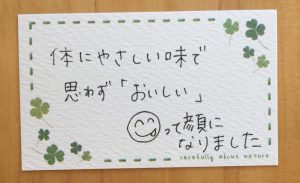 体にやさしい味で
思わず「おいしい」
って顔に
なりました
carefully about nature